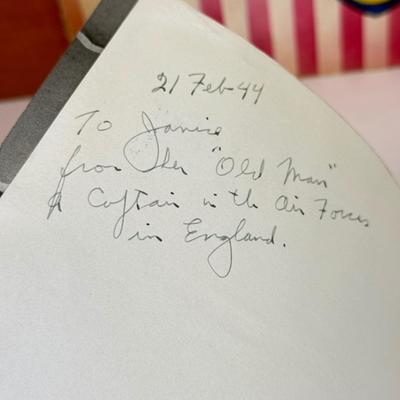 21 Feb-44
To Janice
from her "Old Man"
A Captain in the Air Forces
in England.